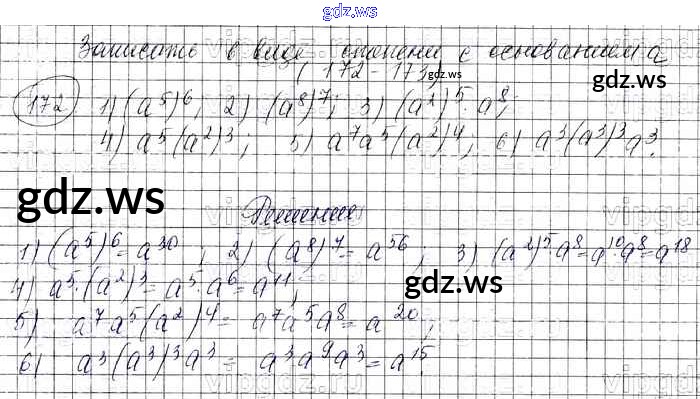 gdz.ws
Записать в виде степени с основанием a
(172-173)
172 1) (a⁵)⁶; 2) (a⁸)⁷; 3) (a²)⁵·a⁸;
4) a⁵(a²)³; 5) a⁷a⁵(a²)⁴; 6) a³(a³)³a³.
gdz.ws
Решение
1) (a⁵)⁶=a³⁰, 2) (a⁸)⁷=a⁵⁶; 3) (a²)⁵·a⁸=a¹⁰·a⁸=a¹⁸
gdz.ws
4) a⁵·(a²)³=a⁵·a⁶=a¹¹;
5) a⁷a⁵(a²)⁴= a⁷a⁵a⁸=a²⁰;
6) a³(a³)³a³= a³a⁹a³=a¹⁵
gdz.ws